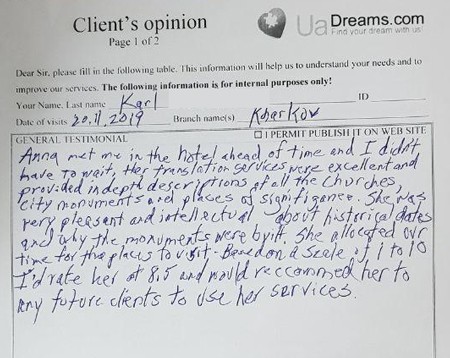 Client's opinion
Page 1 of 2
UaDreams.com
Find your dream with us!
Dear Sir, please fill in the following table. This information will help us to understand your needs and to
improve our services. The following information is for internal purposes only!
Your Name, Last name Karl ID
Date of visits 20.11.2019 Branch name(s) Kharkov
GENERAL TESTIMONIAL ☐ I PERMIT PUBLISH IT ON WEB SITE
Anna met me in the hotel ahead of time and I didn't
have to wait, Her translation services were excellent and
provided indepth descriptions of all the Churches,
city monuments and places of significance. She was
very pleasant and intellectual about historical dates
and why the monuments were built. She allocated our
time for the places to visit. Based on a scale of 1 to 10
I'd rate her at 8.5 and would reccommed her to
any future clients to use her services.